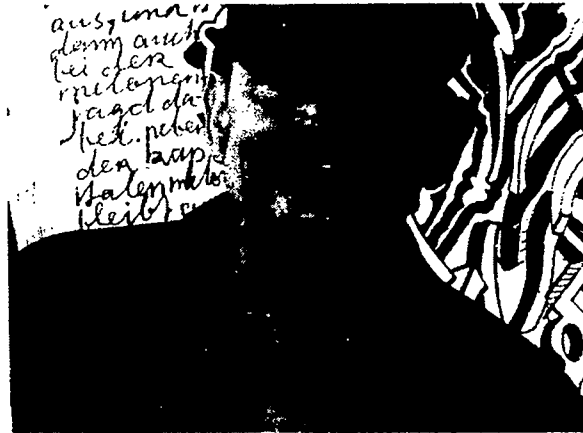 aus, und
dann auch
bei der
jagd da-
bei. neben
der kap
bleibt